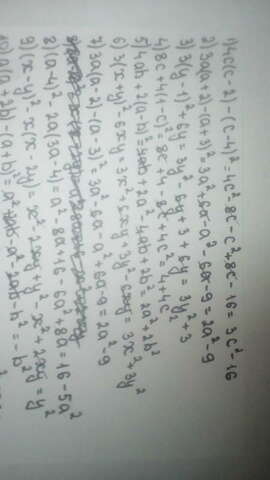 1) 4c(c-2)-(c-4)²=4c²-8c-c²+8c-16=3c²-16
2) 3a(a+2)-(a+3)²=3a²+6a-a²-6a-9=2a²-9
3) 3(y-1)²+6y=3y²-6y+3+6y=3y²+3
4) 8c+4(1-c)²=8c+4-8c+4c²=4+4c²
5) 4ab+2(a-b)²=4ab+2a²-4ab+2b²=2a²+2b²
6) 3(x+y)²-6xy=3x²+6xy+3y²-6xy=3x²+3y²
7) 3a(a-2)-(a-3)²=3a²-6a-a²+6a-9=2a²-9
8) (a-4)²-2a(3a-4)=a²-8a+16-6a²+8a=16-5a²
9) (x-y)²-x(x-2y)=x²-2xy+y²-x²+2xy=y²
10) a(a+2b)-(a+b)²=a²+2ab-a²-2ab-b²=-b²